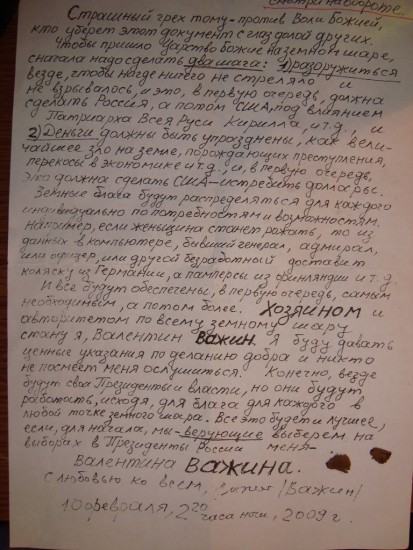 смотри на обороте.
Страшный грех тому - против Воли Божией,
кто уберет этот документ с глаз долой других.
Чтобы пришло Царство Божие на земном шаре,
сначала надо сделать два шага: 1) разоружиться
везде, чтобы нигде ничего не стреляло и
не взрывалось, и это, в первую очередь, должна
сделать Россия, а потом США, под влиянием
Патриарха Всея Руси Кирилла, и т.д., и
2) Деньги должны быть упразднены, как вели-
чайшее зло на земле, порождающих преступления,
перекосы в экономике и т.д., и, в первую очередь,
это должна сделать США - истребить доллары.
Земные блага будут распределяться для каждого
индивидуально по потребностям и возможностям.
Например, если женщина станет рожать, то из
данных в компьютере, бывший генерал, адмирал,
или офицер, или другой безработный доставит
коляску из Германии, а памперсы из Финляндии и т.д.
И все будут обеспечены, в первую очередь, самым
необходимым, а потом более. Хозяином и
авторитетом по всему земному шару
стану я, Валентин Важин. Я буду давать
ценные указания по деланию добра и никто
не посмеет меня ослушиться. Конечно, везде
будут свои Президенты и власти, но они будут
работать, исходя, для блага для каждого в
любой точке земного шара. Все это будет и лучшее,
если, для начала, мы - верующие выберем на
выборах в Президенты России меня -
Валентина Важина.
С любовью ко всем, /Важин/
10 февраля, 2 20 часа ночи, 2009 г.